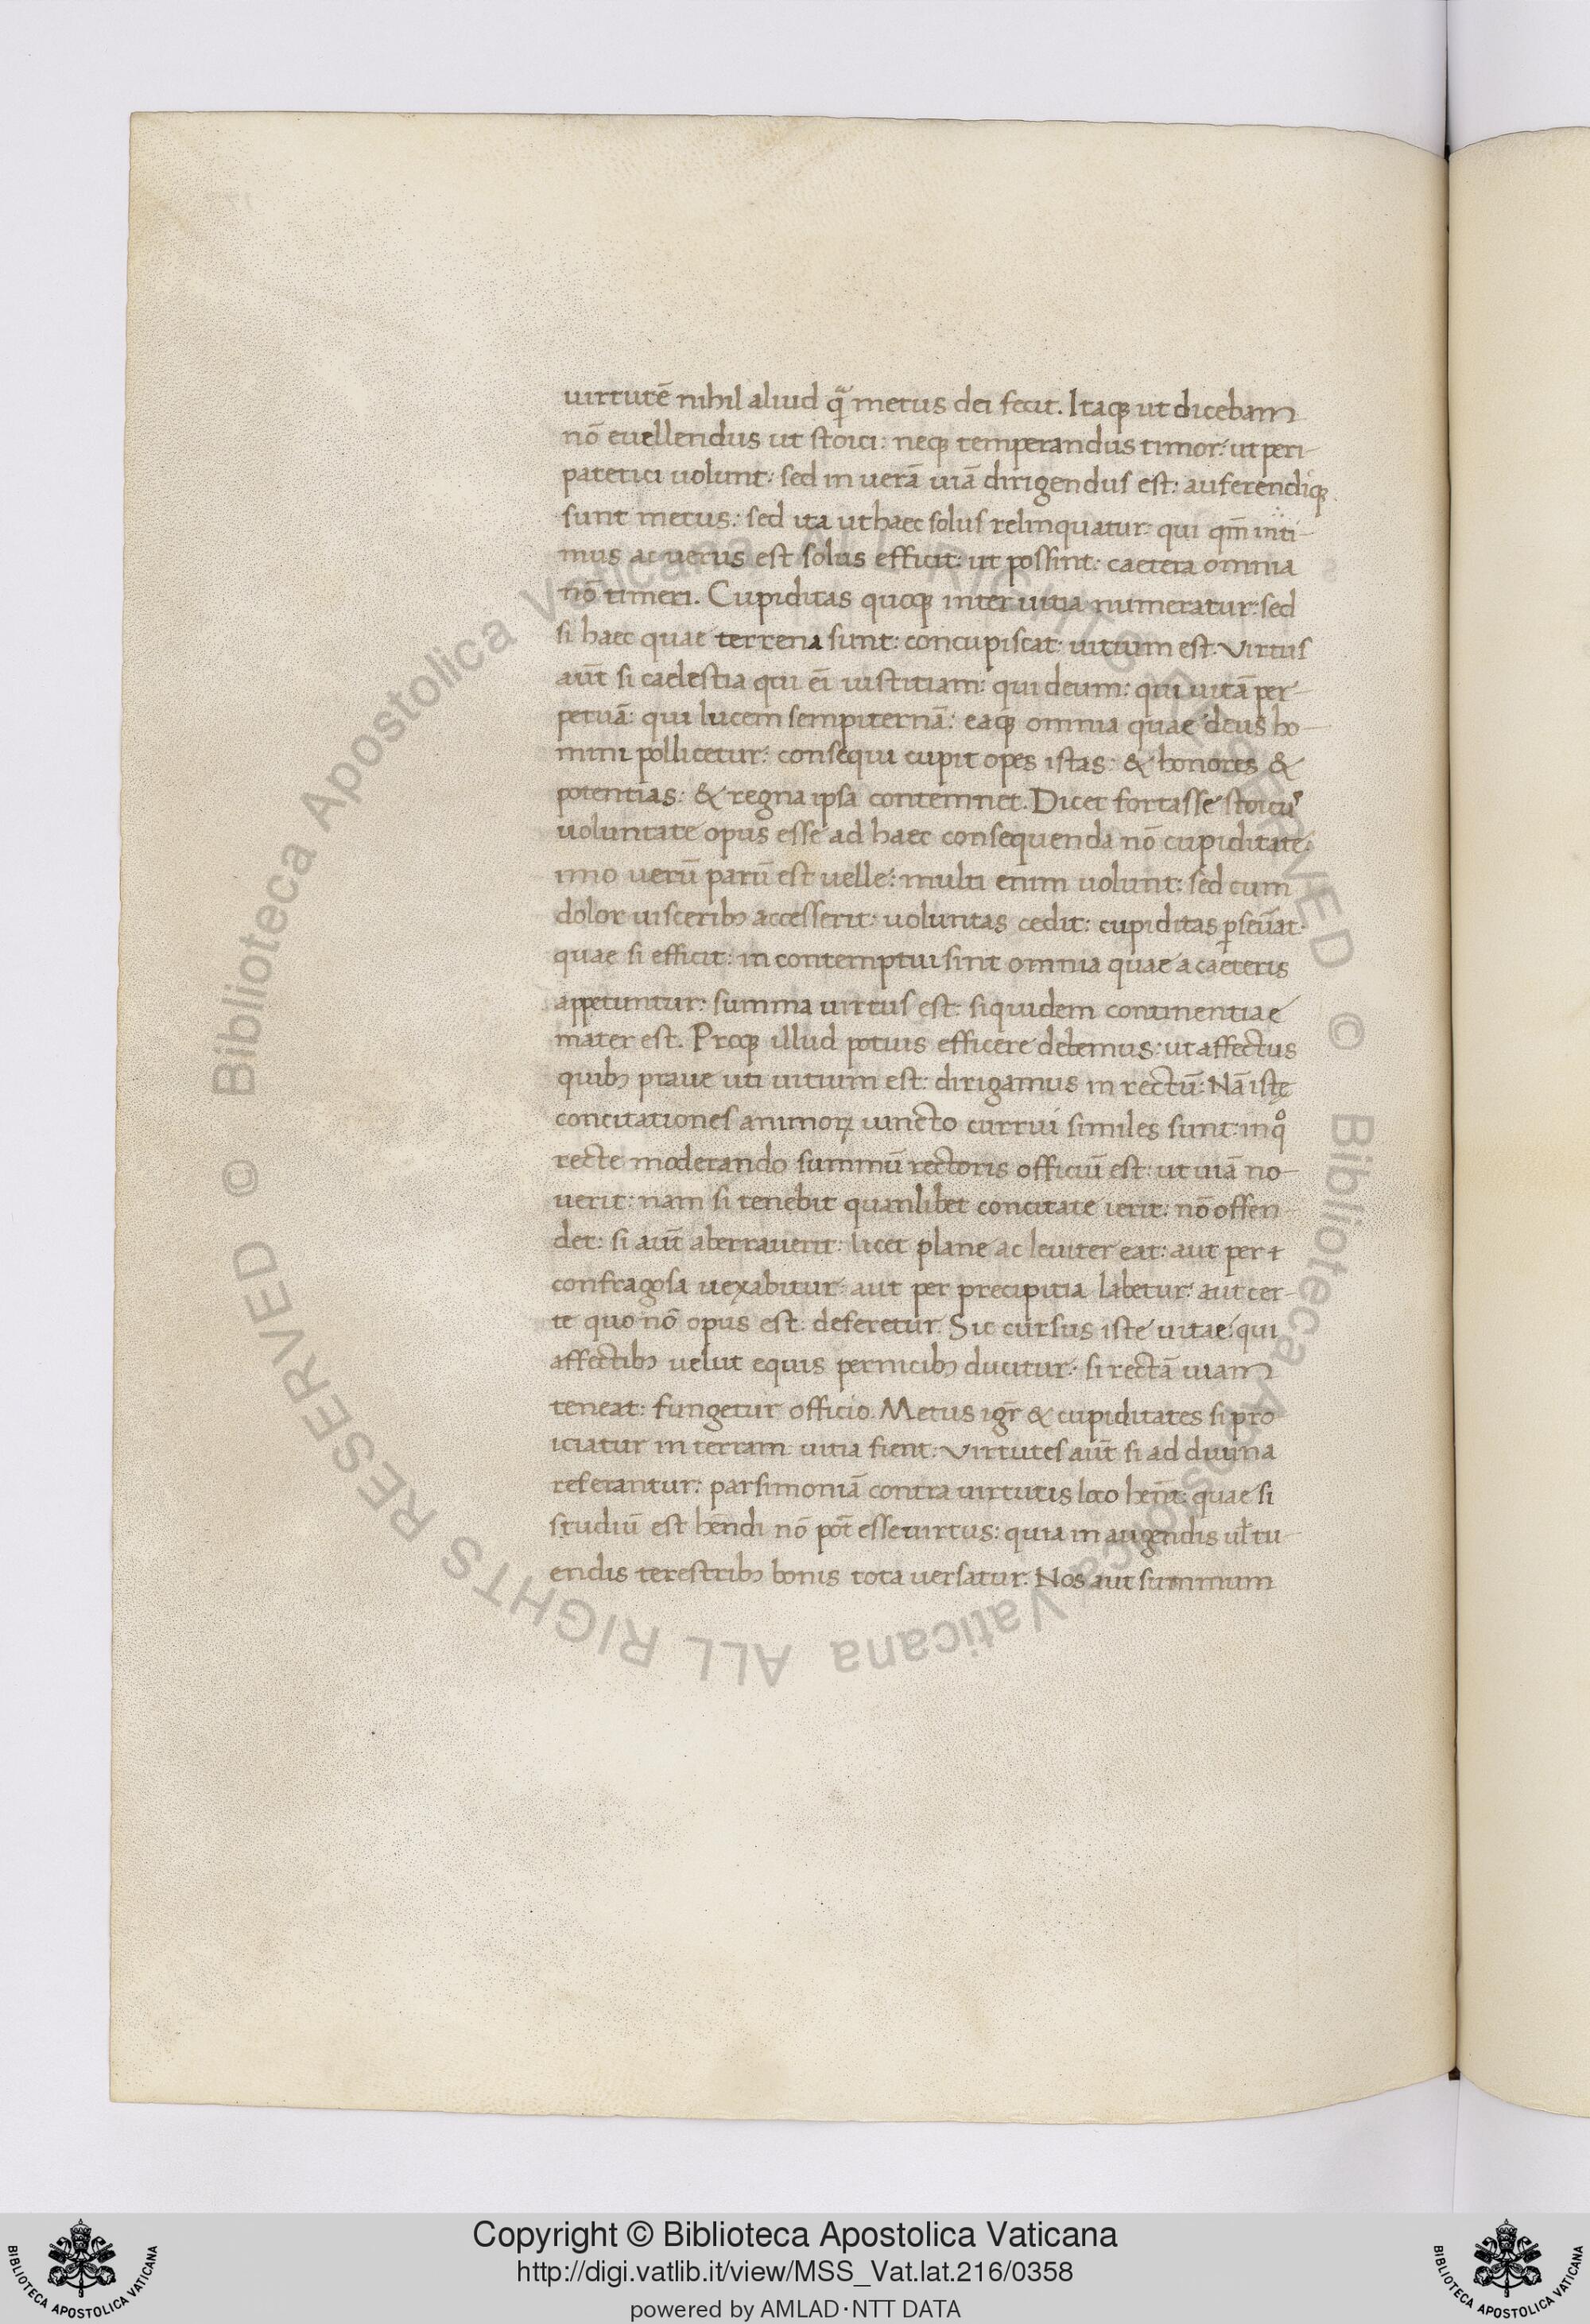 uirtutē nihil aliud quā metus dei fecit. Itaqꝫ ut dicebam
nō euellendus ut stoici: neqꝫ temperandus timor: ut peri-
patetici uolunt: sed in uerā uiā dirigendus est: auferendiqꝫ
sunt metus: sed ita ut haec solus relinquatur: qui qm̄
mus ac uerus est solus efficit: ut possint: caetera omnia
nō timeri. Cupiditas quoqꝫ inter uitia numeratur: sed
si haec quae terrena sunt: concupiscat: uitium est. Virtus
aūt si caelestia qui ei iustitiam: qui deum: qui uitā per-
petuā: qui lucem sempiternā: eaqꝫ omnia quae deus ho-
mini pollicetur: consequi cupit opes istas: & honores &
potentias: & regna ipsa contemnet. Dicet fortasse stoicuꝰ
uoluntate opus esse ad haec consequenda nō cupiditate:
imo uerū parū est uelle: multi enim uolunt: sed cum
dolor uisceribꝫ accesserit: uoluntas cedit: cupiditas ꝑseūat:
quae si efficit: in contemptui sint omnia quae a caeteris
appetuntur: summa uirtus est: siquidem continentiae
mater est. Proqꝫ illud potius efficere debemus: ut affectus
quibꝫ praue uti uitium est: dirigamus in rectū: Nā istę
concitationes animoꝝ iuncto currui similes sunt: in qͦ
recte moderando summū rectoris officiū est: ut uiā no-
uerit: nam si tenebit quamlibet concitate ierit: nō offen
det: si aūt aberrauerit: licet plane ac leuiter eat: aut per
confragosa uexabitur: aut per precipitia labetur: aut cer-
te quo nō opus est: deferetur. Sic cursus iste uitae: qui
affectibꝫ uelut equis pernicibꝫ ducitur: si rectā uiam
teneat: fungetur officio. Metus igr̄ & cupiditates si pro
iciatur in terram uitia fient: Virtutes aūt si ad diuina
referantur: parsimoniā contra uirtutis loco hēnt: quae si
studiū est hēndi nō pōt esse uirtus: quia in augendis uł tu
endis terestribꝫ bonis tota uersatur. Nos aut summum
Copyright © Biblioteca Apostolica Vaticana
http://digi.vatlib.it/view/MSS_Vat.lat.216/0358
powered by AMLAD·NTT DATA
BIBLIOTECA APOSTOLICA VATICANA
BIBLIOTECA APOSTOLICA VATICANA
© Biblioteca Apostolica Vaticana ALL RIGHTS RESERVED © Biblioteca Apostolica Vaticana ALL RIGHTS RESERVED